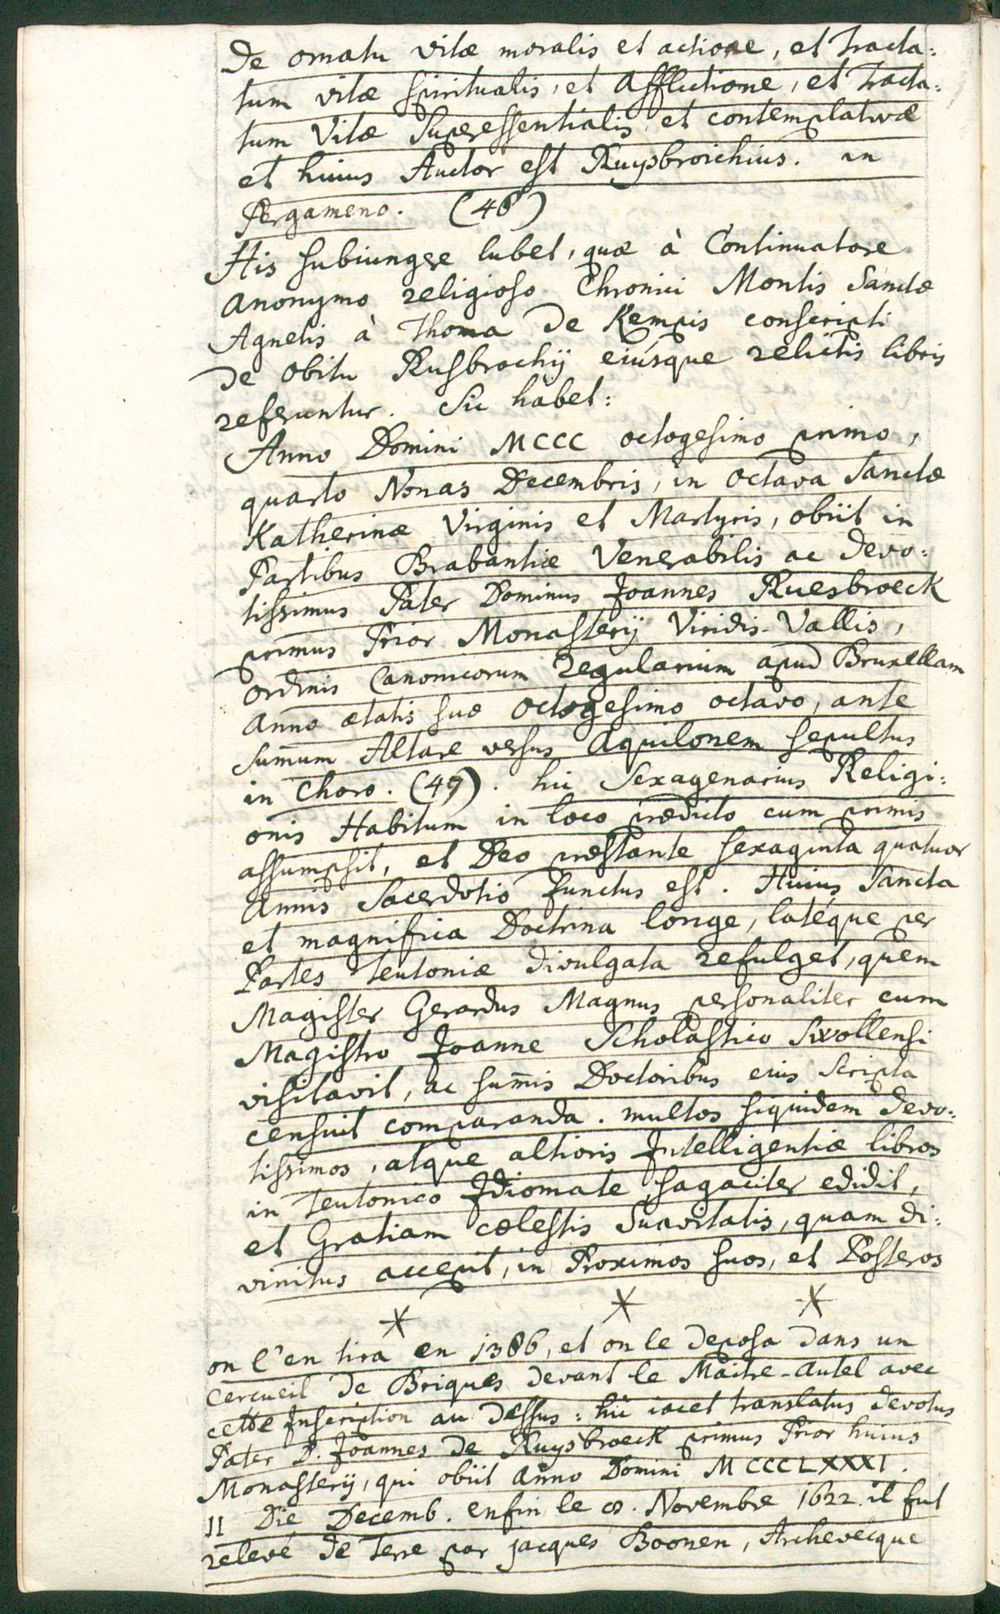 De ornatu vitæ moralis et actione, et Tracta:
tum vitæ spiritualis, et Afflictione, et Tracta:
tum Vitæ Superessentialis et contemplativæ
et huius Auctor est Ruysbroichius. in
Pergameno. (48)
His subiungere lubet, quæ à Continuatore
Anonymo religioso Chronici Montis Sanctæ
Agnetis à Thoma De Kempis conscripti
De obitu Rusbrochij eiusque relictis libris
referuntur. Sic habet:
Anno Domini MCCC octogesimo primo,
quarto Nonas Decembris, in octava Sanctæ
Katherinæ Virginis et Martyris, obiit in
Partibus Brabantiæ Venerabilis ac Devo:
tissimus Pater Dominus Joannes Ruesbroeck
primus Prior Monasterij Viridis-Vallis,
ordinis Canonicorum Regularium apud Bruxellam
Anno ætatis suæ octogesimo octavo, ante
sum̄um Altare versus Aquilonem sepultus
in Choro. (49). hic Sexagenarius Religi:
onis Habitum in loco prædicto cum primis
assumpsit, et Deo præstante sexaginta quatuor
Annis Sacerdotio functus est. Huius Sancta
et magnifica Doctrina longe, latéque per
Partes Teutoniæ Divulgata refulget, quem
Magister Gerardus Magnus personaliter cum
Magistro Joanne Scholastico Swollensi
visitavit, ac sum̄is Doctoribus eius Scripta
censuit comparanda. multos siquidem Devo:
tissimos, atque altioris Intelligentiæ libros
in Teutonico Idiomate sagaciter edidit,
et Gratiam cœlestis Suavitatis, quam di:
vinitus accepit, in Proximos suos, et Posteros
* * *
on l'en tira en 1386, et on le deposa Dans un
cercueil De Briques devant le Maitre-Autel avec
cette Inscription au Dessus: hic iacet translatus Devotus
Pater D. Joannes de Ruysbroeck primus Prior huius
Monasterij, qui obiit Anno Domini MCCCLXXXI.
II Die Decemb. enfin le 8. Novembre 1622 il fut
relevé De Terre par jacques Boonen, Archevecque